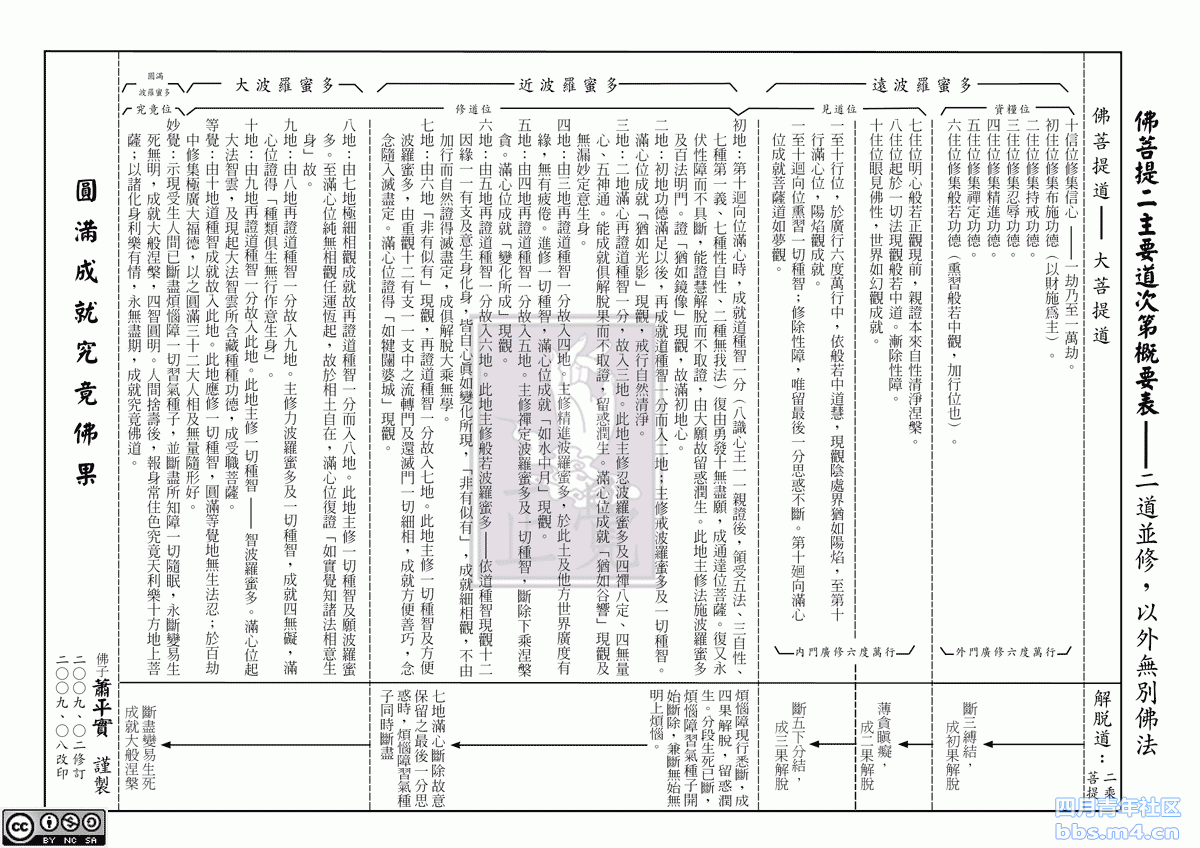 佛菩提二主要道次第概要表——二道並修，以外無別佛法
佛菩提道——大菩提道
解脫道：二乘菩提
遠波羅蜜多
資糧位
十信位修集信心——一劫乃至一萬劫。
初住位修集布施功德（以財施為主）。
二住位修集持戒功德。
三住位修集忍辱功德。
四住位修集精進功德。
五住位修集禪定功德。
六住位修集般若功德（熏習般若中觀，加行位也）。
外門廣修六度萬行
斷三縛結，
成初果解脫
見道位
七住位明心般若正觀現前，親證本來自性清淨涅槃。
八住位起於一切法現觀般若中道。漸除性障。
十住位眼見佛性，世界如幻觀成就。
一至十行位，於廣行六度萬行中，依般若中道慧，現觀陰處界猶如陽焰，至第十
行滿心位，陽焰觀成就。
一至十迴向位熏習一切種智；修除性障，唯留最後一分思惑不斷。第十迴向滿心
位成就菩薩道如夢觀。
內門廣修六度萬行
薄貪瞋癡，
成二果解脫
斷五下分結，
成三果解脫
近波羅蜜多
修道位
初地：第十迴向位滿心時，成就道種智一分（八識心王一一親證後，領受五法、三自性、
七種第一義、七種性自性、二種無我法）復由勇發十無盡願，成通達位菩薩。復又永
伏性障而不具斷，能證慧解脫而不取證，由大願故留惑潤生。此地主修法施波羅蜜多
及百法明門。證「猶如鏡像」現觀，故滿初地心。
二地：初地功德滿足以後，再成就道種智一分而入二地；主修戒波羅蜜多及一切種智。
滿心位成就「猶如光影」現觀，戒行自然清淨。
三地：二地滿心再證道種智一分，故入三地。此地主修忍波羅蜜多及四禪八定、四無量
心、五神通。能成就俱解脫果而不取證，留惑潤生。滿心位成就「猶如谷響」現觀及
無漏妙定意生身。
四地：由三地再證道種智一分故入四地。主修精進波羅蜜多，於此土及他方世界廣度有
緣，無有疲倦。進修一切種智，滿心位成就「如水中月」現觀。
五地：由四地再證道種智一分故入五地。主修禪定波羅蜜多及一切種智，斷除下乘涅槃
貪。滿心位成就「變化所成」現觀。
六地：由五地再證道種智一分故入六地。此地主修般若波羅蜜多——依道種智現觀十二
因緣一一有支及意生身化身，皆自心真如變化所現，「非有似有」，成就細相觀，不由
加行而自然證得滅盡定，成俱解脫大乘無學。
七地：由六地「非有似有」現觀，再證道種智一分故入七地。此地主修一切種智及方便
波羅蜜多，由重觀十二有支一一支中之流轉門及還滅門一切細相，成就方便善巧，念
念隨入滅盡定。滿心位證得「如犍闥婆城」現觀。
煩惱障現行悉斷，成
四果解脫，留惑潤
生。分段生死已斷，
煩惱障習氣種子開
始斷除，兼斷無始無
明上煩惱。
七地滿心斷除故意
保留之最後一分思
惑時，煩惱障習氣種
子同時斷盡
大波羅蜜多
八地：由七地極細相觀成就故再證道種智一分而入八地。此地主修一切種智及願波羅蜜
多。至滿心位純無相觀任運恆起，故於相土自在，滿心位復證「如實覺知諸法相意生
身」故。
九地：由八地再證道種智一分故入九地。主修力波羅蜜多及一切種智，成就四無礙，滿
心位證得「種類俱生無行作意生身」。
十地：由九地再證道種智一分故入此地。此地主修一切種智——智波羅蜜多。滿心位起
大法智雲，及現起大法智雲所含藏種種功德，成受職菩薩。
等覺：由十地道種智成就故入此地。此地應修一切種智，圓滿等覺地無生法忍；於百劫
中修集極廣大福德，以之圓滿三十二大人相及無量隨形好。
圓滿波羅蜜多
究竟位
妙覺：示現受生人間已斷盡煩惱障一切習氣種子，並斷盡所知障一切隨眠，永斷變易生
死無明，成就大般涅槃，四智圓明。人間捨壽後，報身常住色究竟天利樂十方地上菩
薩；以諸化身利樂有情，永無盡期，成就究竟佛道。
斷盡變易生死
成就大般涅槃
圓滿成就究竟佛果
佛子蕭平實 謹製
二〇〇九、〇二修訂
二〇〇九、〇八改印
正覺
cc BY NC SA
四月青年社区
bbs.m4.cn